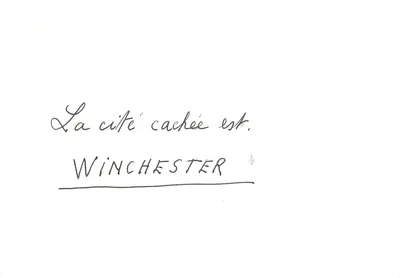 La cité cachée est.
WiNCHESTER